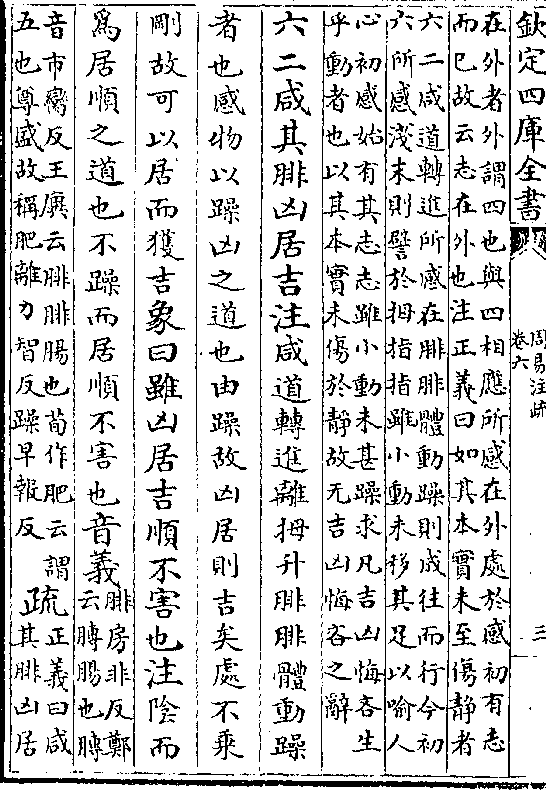 欽定四庫全書
周易注疏
卷六
三
在外者外謂四也與四相應所感在外處於感初有志
而已故云志在外也注正義曰如其本實未至傷靜者
六二咸道轉進所感在腓腓體動躁則成往而行今初
六所感淺末則譬於拇指指雖小動未移其足以喻人
心初感始有其志志雖小動未甚躁求凡吉凶悔吝生
乎動者也以其本實未傷於靜故无吉凶悔吝之辭
六二咸其腓凶居吉注咸道轉進離拇升腓腓體動躁
者也感物以躁凶之道也由躁故凶居則吉矣處不乘
剛故可以居而獲吉象曰雖凶居吉順不害也注陰而
爲居順之道也不躁而居順不害也音義
腓房非反鄭
云膊腸也膊
音市臠反王廙云腓腓腸也荀作肥云謂
五也尊盛故稱肥離力智反躁早報反
疏
正義曰咸
其腓凶居